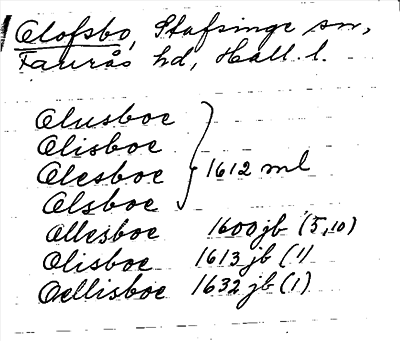 Olofsbo, Stafsinge sn,
Faurås hd, Hall. l.
Olusboe
Olisboe
Olesboe } 1612 ml
Olsboe
Ollesboe 1600 jb (5,10)
Olisboe 1613 jb (1)
Oellisboe 1632 jb (1)